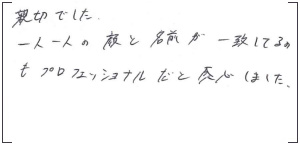 親切でした.
一人一人の顔と名前が一致してるの
もプロフェッショナルだと感心しました.